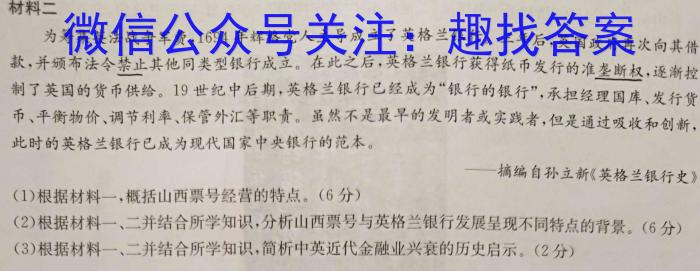 材料二
微信公众号关注：趣找答案
为 1694年辉格党人 成立了英格兰 再次向其借
款,并颁布法令禁止其他同类型银行成立。在此之后,英格兰银行获得纸币发行的准垄断权,逐渐控
制了英国的货币供给。19世纪中后期,英格兰银行已经成为“银行的银行”,承担经理国库、发行货
币、平衡物价、调节利率、保管外汇等职责。虽然不是最早的发明者或实践者,但是通过吸收和创新,
此时的英格兰银行已成为现代国家中央银行的范本。
——摘编自孙立新《英格兰银行史》
(1)根据材料一,概括山西票号经营的特点。(6分)
(2)根据材料一、二并结合所学知识,分析山西票号与英格兰银行发展呈现不同特点的背景。(6分)
(3)根据材料一、二并结合所学知识,简析中英近代金融业兴衰的历史启示。(2分)